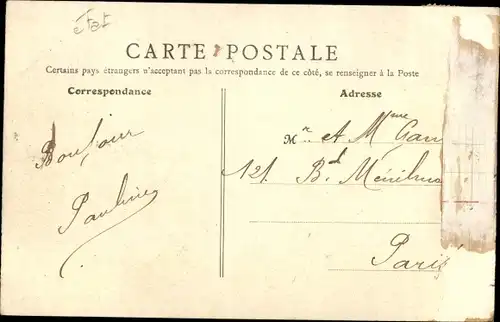 état
CARTE POSTALE
Certains pays étrangers n'acceptant pas la correspondance de ce côté, se renseigner à la Poste
Correspondance
Adresse
Bonjour
Pauline
Mr et Mme Gan
121. Bd Ménilmo
Paris